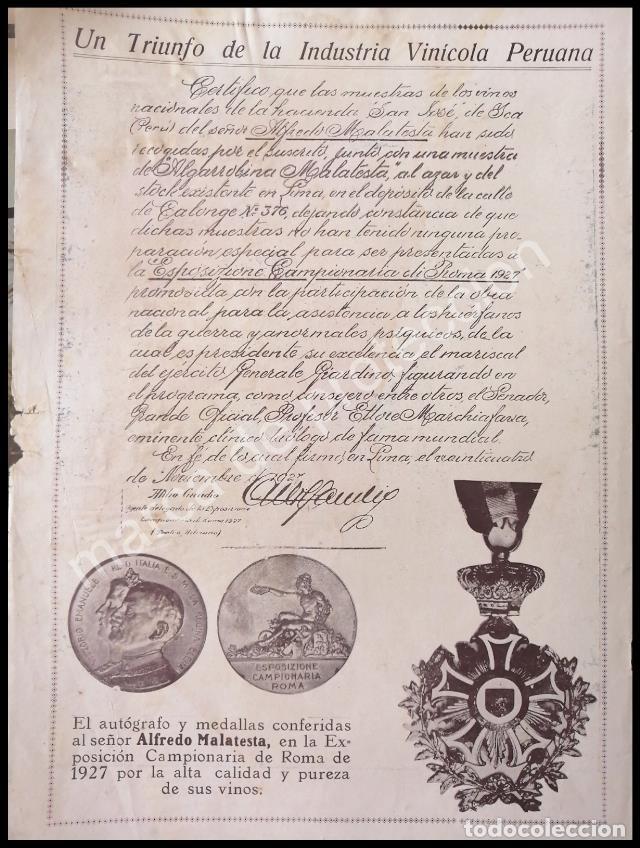 Un Triunfo de la Industria Vinícola Peruana
Certifico que las muestras de los vinos
nacionales de la hacienda "San José", de Ica
(Perú) del señor Alfredo Malatesta han sido
recogidas por el suscrito, junto con una muestra
de "Algarrobina Malatesta," al azar y del
stock existente en Lima, en el depósito de la calle
de Calonge Nº 376, dejando constancia de que
dichas muestras no han tenido ninguna pre-
paración especial para ser presentadas a
la Esposizione Campionaria di Roma 1927
promovida con la participación de la obra
nacional para la asistencia a los huérfanos
de la guerra y anormales psíquicos, de la
cual es presidente su excelencia el mariscal
del ejército Generale Giardino figurando en
el programa, como consejero entre otros, el Senador,
Grande Oficial, Profesor Ettore Marchiafava,
eminente clínico biólogo de fama mundial.
En fé de lo cual firmo, en Lima, el veinticuatro
de Noviembre de 1927
Attilio
delegado de la Esposizione
Campionaria di Roma 1927
ESPOSIZIONE
CAMPIONARIA
ROMA
El autógrafo y medallas conferidas
al señor Alfredo Malatesta, en la Ex-
posición Campionaria de Roma de
1927 por la alta calidad y pureza
de sus vinos.
todocoleccion